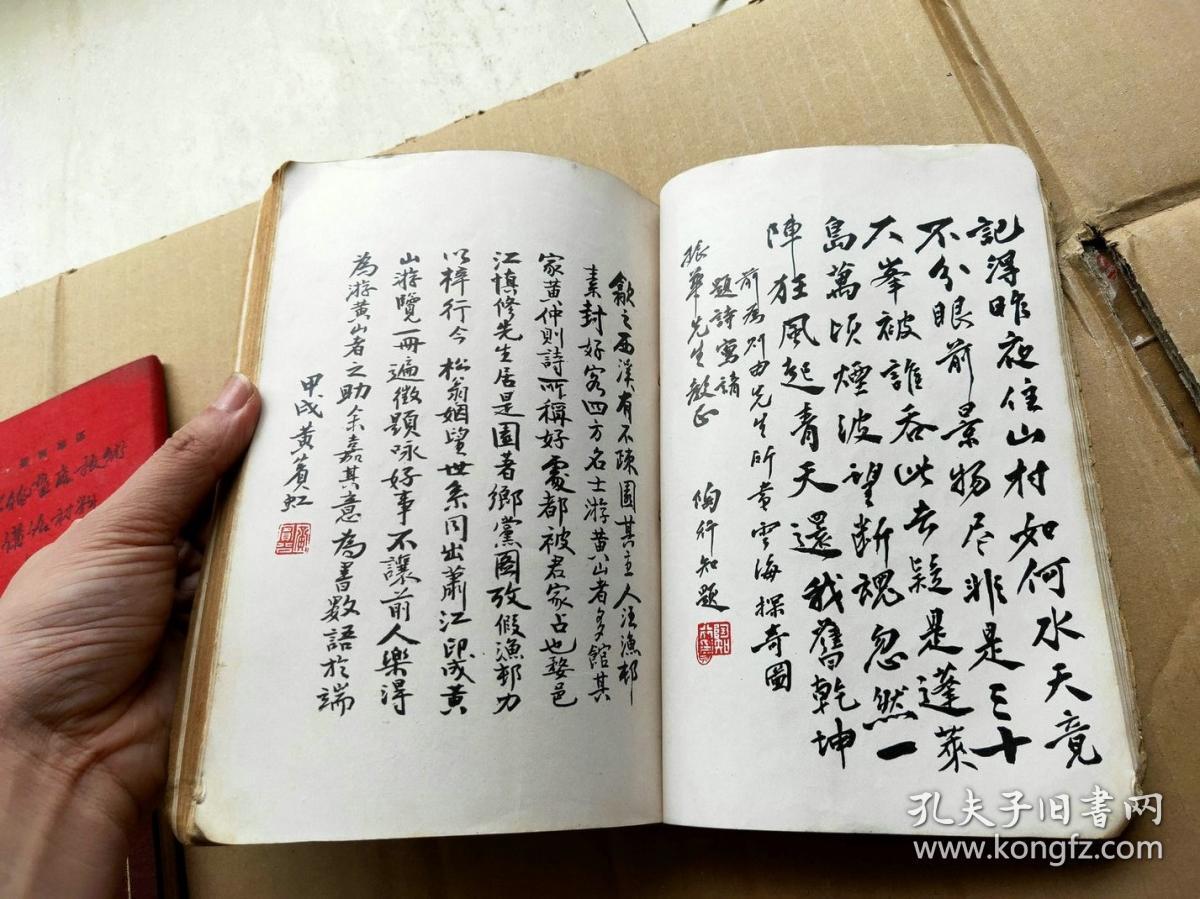 記得昨夜住山村如何水天竟
不分眼前景物尽非是三十
六峯被誰吞此去疑是蓬萊
島萬頃煙波望断魂忽然一
陣狂風起青天還我舊乾坤
前為列由先生所畫雲海探奇圖
題詩寫請
振華先生教正
陶行知題
歙之西溪有不疎園其主人汪漁邨
素封好客四方名士游黄山者多館其
家黄仲則詩所稱好處都被君家占也婺邑
江慎修先生居是園著鄉黨圖攷假漁邨力
以梓行今 松翁姻世系同出蕭江印成黄
山游覽一冊遍徵題咏好事不讓前人樂得
為游黄山者之助余嘉其意為書數語於端
甲戌黄賓虹
孔夫子旧书网
www.kongfz.com